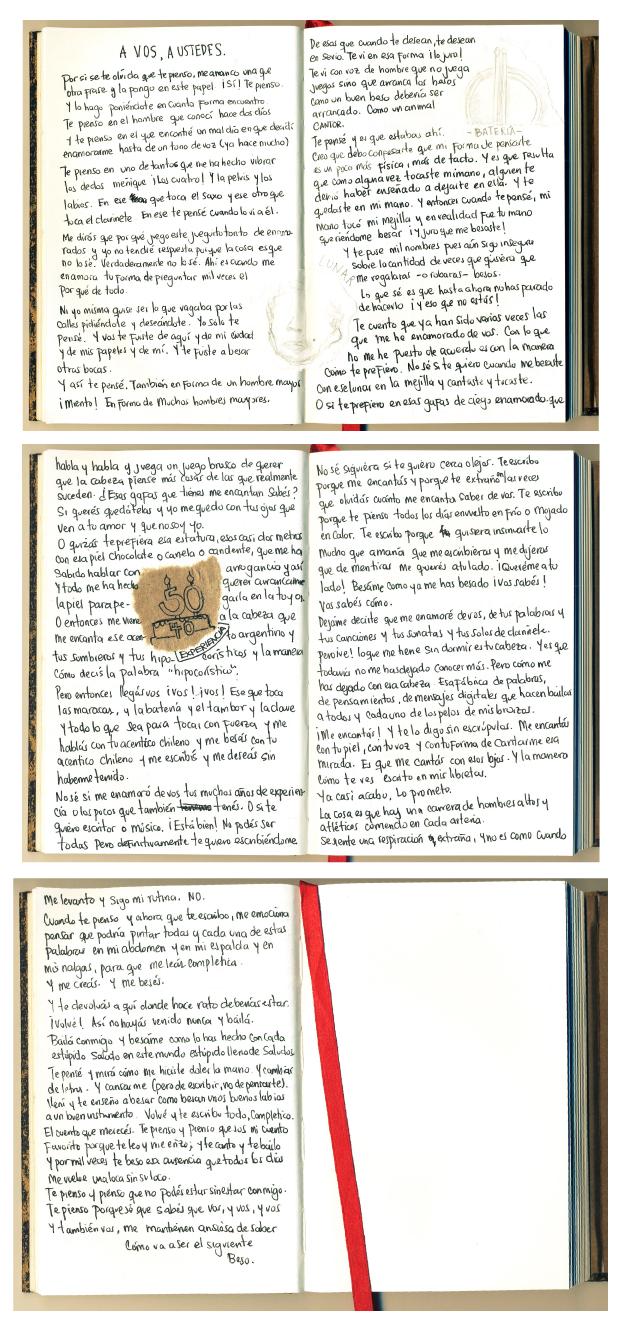 A VOS, A USTEDES.
Por si se te olvida que te pienso, me arranco una que
otra frase y la pongo en este papel. ¡Sí! Te pienso.
Y lo hago poniéndote en cuanta forma encuentro.
Te pienso en el hombre que conocí hace dos días
y te pienso en el que encontré un mal día en que decidí
enamorarme hasta de un tono de voz (ya hace mucho)
Te pienso en uno de tantos que me ha hecho vibrar
los dedos meñique ¡Los cuatro! Y la pelvis y los
labios. En ese que toca el saxo y ese otro que
toca el clarinete. En ese te pensé cuando lo vi a él.
Me dirás que por qué juego este jueguito tonto de enamo-
rados y yo no tendré respuesta porque la cosa es que
no lo sé. Verdaderamente no lo sé. Ahí es cuando me
enamora tu forma de preguntar mil veces el
por qué de todo.
Ni yo misma quise ser lo que vagaba por las
calles pidiéndote y deseándote. Yo solo te
pensé. Y vos te fuiste de aquí y de mi ciudad
y de mis papeles y de mí. Y te fuiste a besar
otras bocas.
Y así te pensé. También en forma de un hombre mayor
¡Miento! En forma de muchos hombres mayores.
De esas que cuando te desean, te desean
en serio. Te vi en esa forma ¡lo juro!
Te vi con voz de hombre que no juega
juegos sino que arranca los besos
como un buen beso debería ser
arrancado. Como un animal
CANTOR.
Te pensé y es que estabas ahí.
-BATERÍA-
Creo que debo confesarte que mi forma de pensarte
es un poco más física, más de tacto. Y es que resulta
que como alguna vez tocaste mi mano, alguien te
debió haber enseñado a dejarte en ella. Y te
quedaste en mi mano. Y entonces cuando te pensé, mi
mano tocó mi mejilla y en realidad fue tu mano
queriéndome besar ¡Y juro que me besaste!
LUNAR
Y te puse mil nombres pues aún sigo insegura
sobre la cantidad de veces que quisiera que
me regalaras -o robaras- besos.
Lo que sé es que hasta ahora no has parado
de hacerlo ¡y eso que no estás!
Te cuento que ya han sido varias veces las
que me he enamorado de vos. Con lo que
no me he puesto de acuerdo es con la manera
como te prefiero. No sé si te quiero cuando me besaste
con ese lunar en la mejilla y cantaste y tocaste.
O si te prefiero en esas gafas de ciego enamorado que
habla y habla y juega un juego brusco de querer
que la cabeza piense más cosas de las que realmente
suceden. ¿Esas gafas que tienes me encantan sabés?
Si querés quedátelas y yo me quedo con tus ojos que
ven a tu amor y que no soy yo.
O quizás te prefiera esa estatura, esos casi dos metros
con esa piel chocolate o canela o candente, que me ha
sabido hablar con arrogancia y así
y todo me ha hecho querer arrancarme
la piel para pe- garla en la tuya.
O entonces me viene a la cabeza que
me encanta ese acen- to argentino y
tus sombreros y tus hipo- corísticos y la manera
cómo decís la palabra "hipocorístico".
50
40
EXPERIENCIA
Pero entonces llegás vos ¡vos! ¡vos! Ese que toca
las maracas, y la batería y el tambor y la clave
y todo lo que sea para tocar con fuerza y me
hablás con tu acentico chileno y me besás con tu
acentico chileno y me escribís y me deseás sin
haberme tenido.
No sé si me enamoró de vos tus muchos años de experien-
cia o los pocos que también tenés. O si te
quiero escritor o músico. ¡Está bien! No podés ser
todas pero definitivamente te quiero escribiéndome
No sé siquiera si te quiero cerca o lejos. Te escribo
porque me encantás y porque te extraño en las veces
que olvidás cuánto me encanta saber de vos. Te escribo
porque te pienso todos los días envuelto en frío o mojado
en calor. Te escribo porque quisiera insinuarte lo
mucho que amaría que me escribieras y me dijeras
que de mentiras me querés a tu lado. ¡Queréme a tu
lado! Besáme como ya me has besado ¡Vos sabés!
Vos sabés cómo.
Dejáme decirte que me enamoré de vos, de tus palabras y
tus canciones y tus sonatas y tus solos de clarinete.
Percive! lo que me hene sin dormir es tu cabeza. Y es que
todavía no me has dejado conocer más. Pero cómo me
has dejado con esa cabeza. Esa fábrica de palabras,
de pensamientos, de mensajes digitales que hacen bailar
a todos y cada uno de los pelos de mis brazos.
¡Me encantás! Y te lo digo sin escrúpulos. Me encantás
con tu piel, con tu voz y con tu forma de cantarme esa
mirada. Es que me cantás con esos ojos. Y la manera
cómo te ves escrito en mis libretas.
Ya casi acabo, lo prometo.
La cosa es que hay una carrera de hombres altos y
atléticos corriendo en cada arteria.
Se siente una respiración extraña, y no es como cuando
me levanto y sigo mi rutina. NO.
Cuando te pienso y ahora que te escribo, me emociona
pensar que podría pintar todas y cada una de estas
palabras en mi abdomen y en mi espalda y en
mis nalgas, para que me leás completica.
Y me creás. Y me besés.
Y te devolvás a quí donde hace rato deberías estar.
¡Volvé! Así no hayás venido nunca y bailá.
Bailá conmigo y besáme como lo has hecho con cada
estúpido saludo en este mundo estúpido lleno de saludos.
Te pensé y mirá cómo me hiciste doler la mano. Y cambiar
de letra. Y cansarme (pero de escribir, no de pensarte).
Vení y te enseño a besar como besan unos buenos labios
a un buen instrumento. Volvé y te escribo todo, completico.
El cuento que merecés. Te pienso y pienso que sos mi cuento
favorito porque te leo y me erizo; y te canto y te bailo
y por mil veces te beso esa ausencia que todos los días
me vuelve una loca sin su loco.
Te pienso y pienso que no podés estar sin estar conmigo.
Te pienso porque sé que sabés que vos, y vos, y vos
y también vos, me mantienen ansiosa de saber
cómo va a ser el siguiente
Beso.